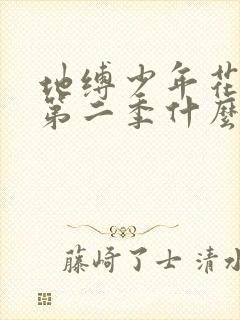 地缚少年花
第二季什麼
藤崎了士 清水